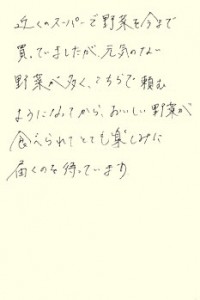 近くのスーパーで野菜を今まで
買っていましたが、元気のない
野菜が多く、こちらで頼む
ようになってから、おいしい野菜が
食べられてとても楽しみに
届くのを待っています